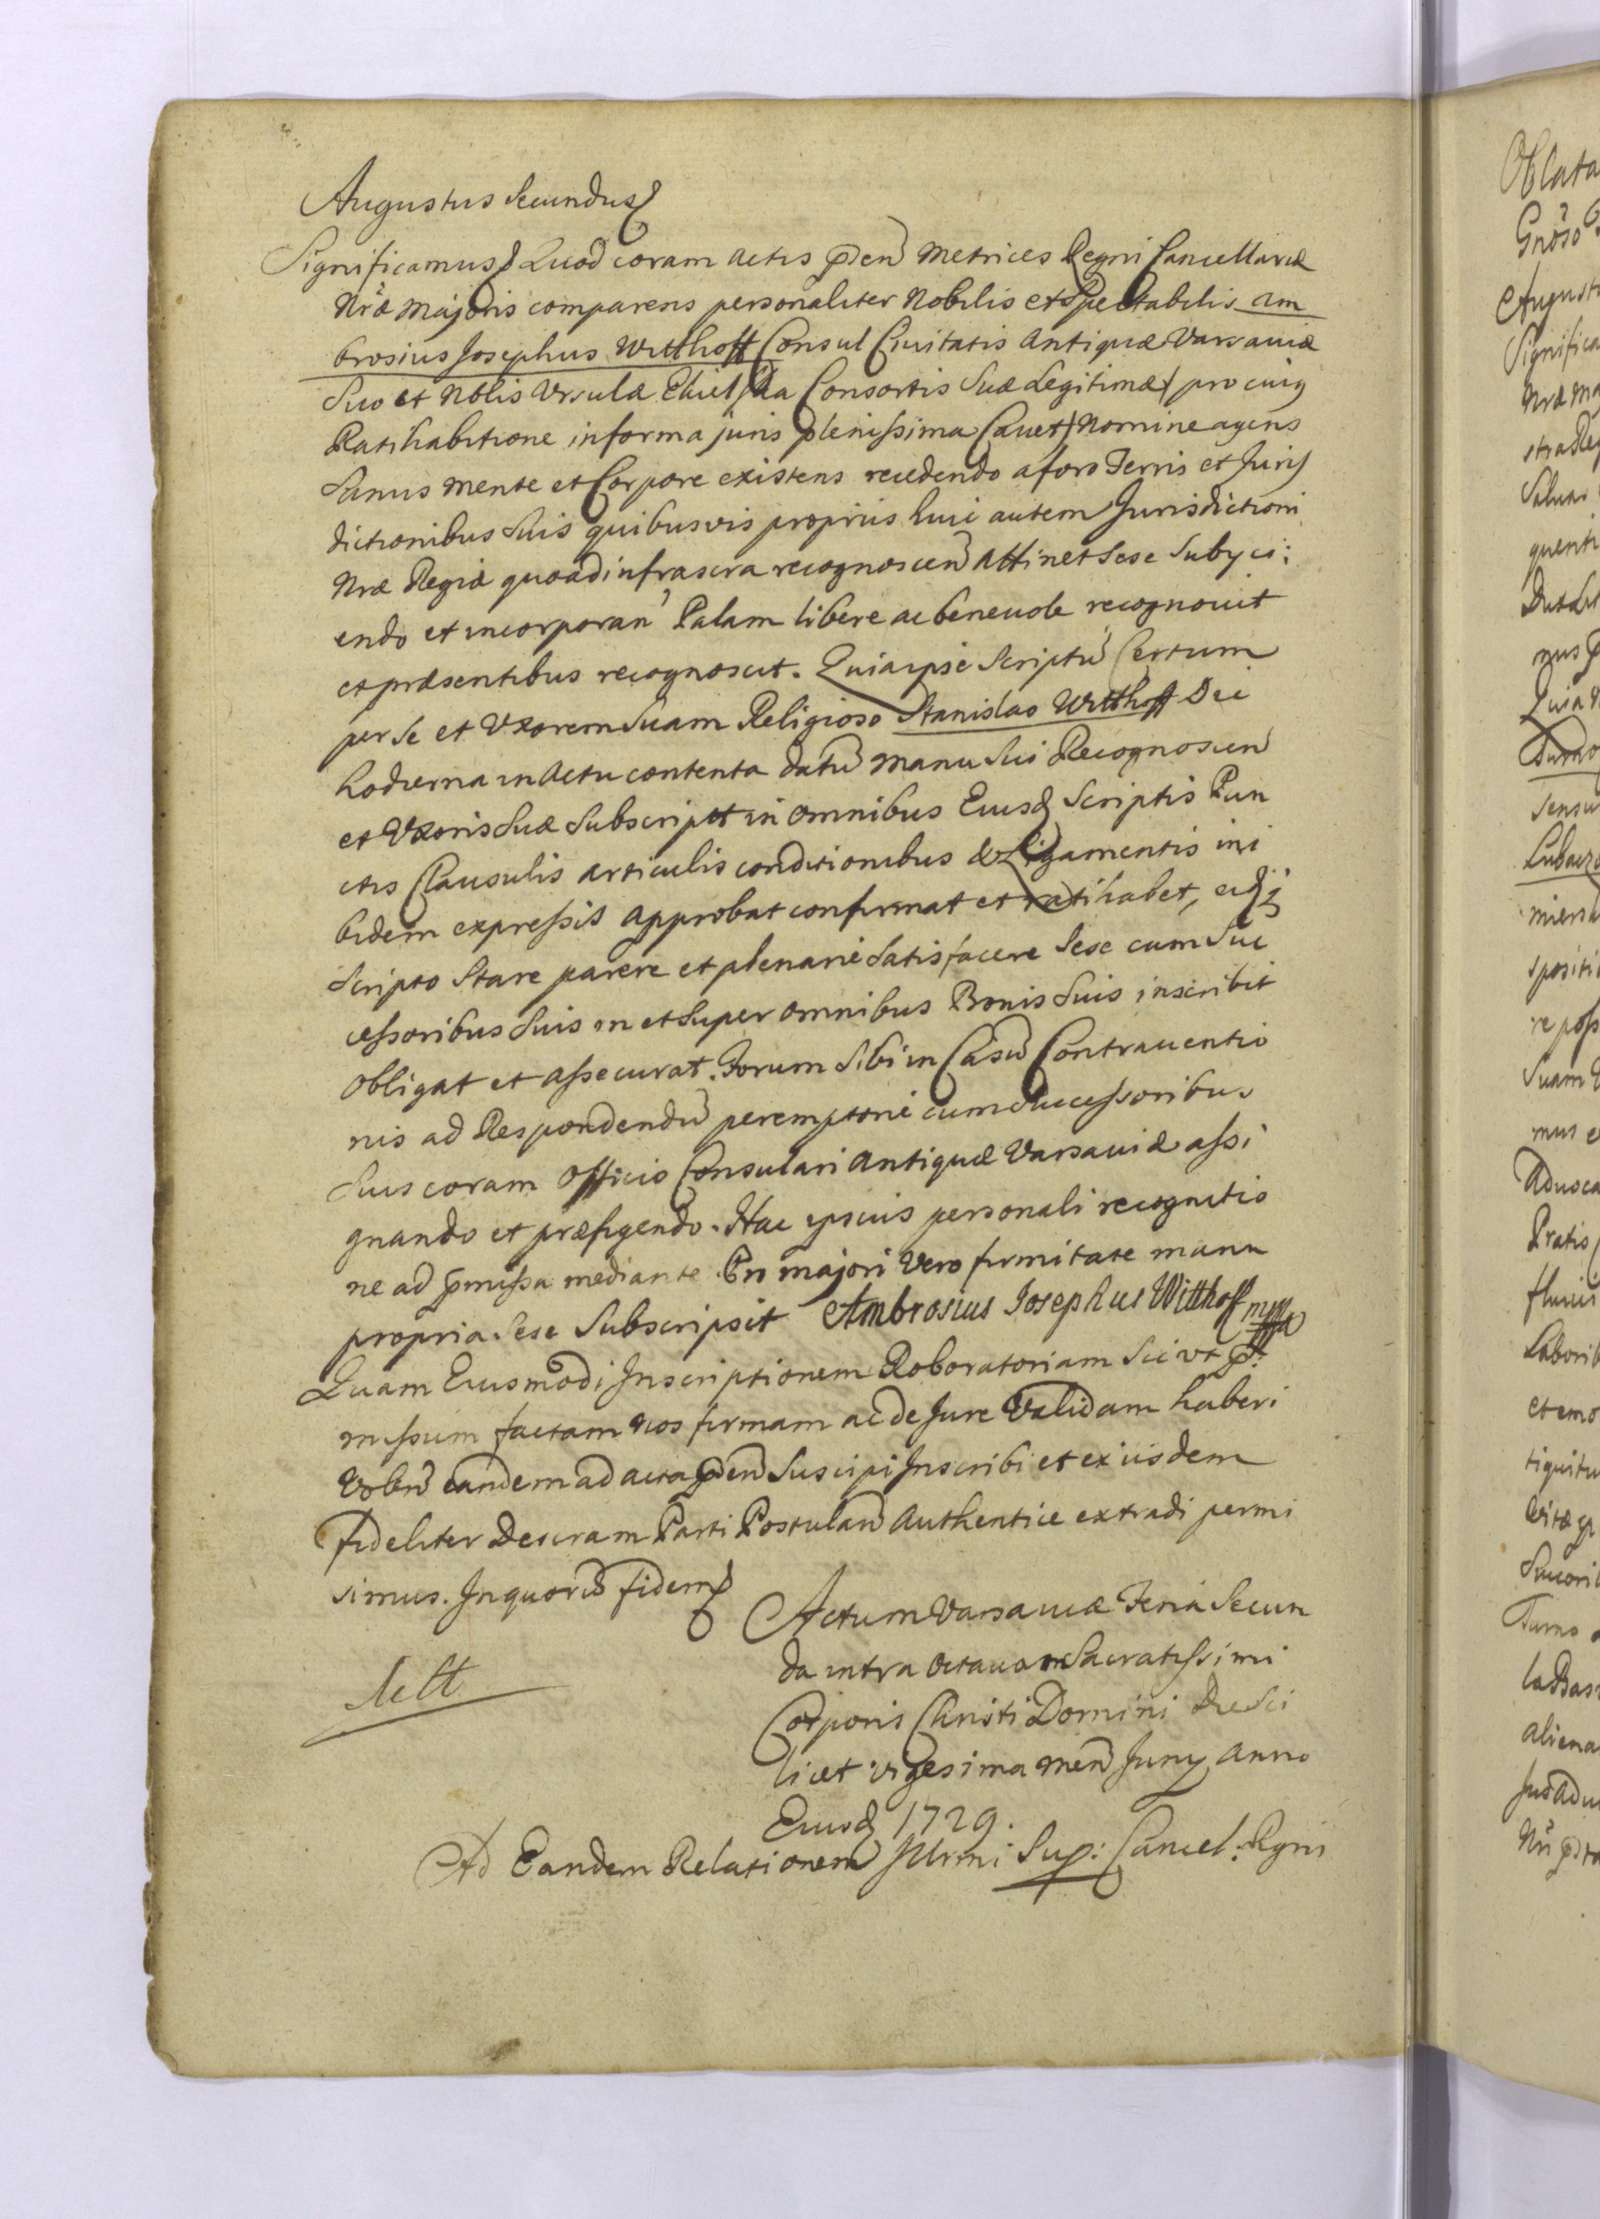 Augustus Secundus
Significamus Quod coram Actis pñden Metrices Regni Cancellariæ
Nræ Majoris comparens personaliter Nobilis et Spectabilis Am
brosius Josephus Witthoff Consul Civitatis Antiquæ Varsaviæ
Suo et Nblis Ursulæ Consortis Suæ Legitimæ (pro cuius
Ratihabitione in forma juris plenissima Cavet) Nomine agens
Sanus Mente et Corpore existens recedendo a foro Terris et Juris
dictionibus Suis quibusvis propriis huic autem Jurisdictioni
Nræ Regiæ quoad infrascra recognoscen Attinet Sese Subyci:
endo et incorporan Palam libere ac benevole recognovit
et præsentibus recognoscit. Quia ipse Scriptu Certum
per Se et Uxorem Suam Religioso Stanislao Witthoff Die
hodierna in Actu contenta datu Manu Sui Recognoscen
et Uxoris Suæ Subscript in Omnibus Eiusd Scriptis Pun
ctis Clausulis Articulis conditionibus & Ligamentis ini
bidem expressis Approbat confirmat et ratihabet, eidq
Scripto Stare parere et plenarie Satisfacere Sese cum Suc
cessoribus Suis in et Super Omnibus Bonis Suis inscribit
Obligat et Assecurat. Forum Sibi in Casu Contraventio
nis ad Respondendu peremptorie cum Successoribus
Suis coram Officio Consulari Antiquæ Varsaviæ assi
gnando et præfigendo. Hac ipsius personali recognitio
ne ad pmissa mediante. Pro majori Vero firmitate manu
propria Sese Subscripsit Ambrosius Josephus Witthoff mpp
Quam Eiusmodi Inscriptionem Roboratoriam Sic ut p
missum factam Nos firmam ac de Jure Validam haberi
Volen eandem ad acta pñden Suscipi Inscribi et ex iisdem
fideliter Descram Parti Postulan Authentice extradi permi
simus. In quoru fidem
Actum Varsaviæ Feria Secun
da intra Octavam Sacratissimi
Corporis Christi Domini Die Sci
licet vigesima Men Juny Anno
Eiusd 1729.
Ad Eandem Relationem Illrmi Sup: Cancel: Rgni
Oblata
Gnoso
August
Significa
Nræ Ma